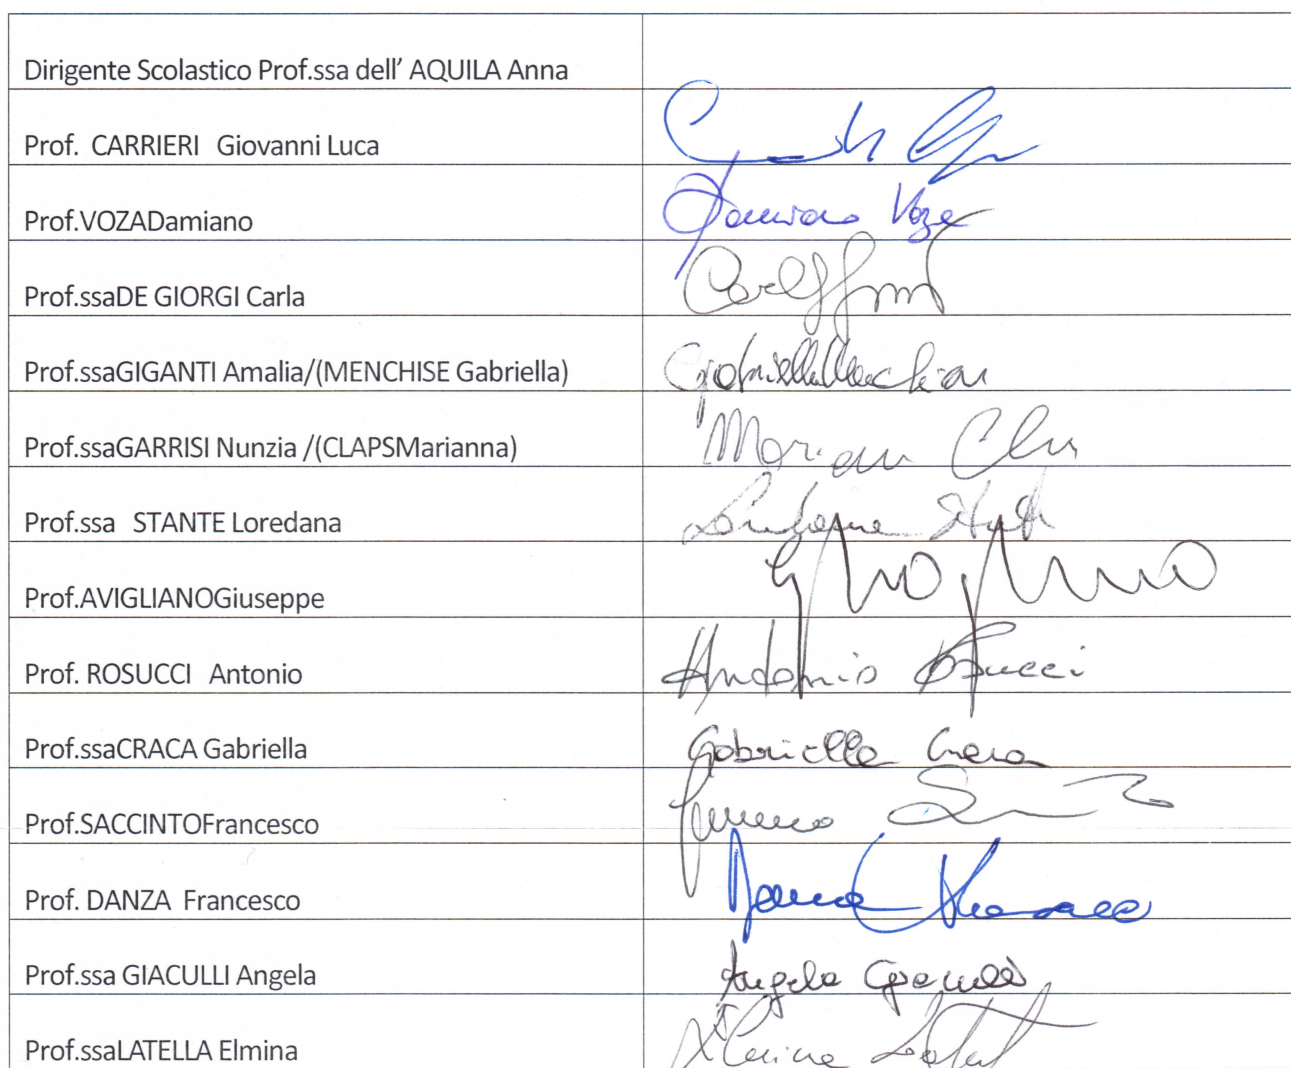 Dirigente Scolastico Prof.ssa dell' AQUILA Anna
Prof. CARRIERI Giovanni Luca
Prof.VOZADamiano Damiano Voza
Prof.ssaDE GIORGI Carla
Prof.ssaGIGANTI Amalia/(MENCHISE Gabriella) Gabriella
Prof.ssaGARRISI Nunzia /(CLAPSMarianna)
Prof.ssa STANTE Loredana
Prof.AVIGLIANOGiuseppe
Prof. ROSUCCI Antonio Antonio Rosucci
Prof.ssaCRACA Gabriella Gabriella Craca
Prof.SACCINTOFrancesco
Prof. DANZA Francesco Danza Francesco
Prof.ssa GIACULLI Angela Angela Giaculli
Prof.ssaLATELLA Elmina